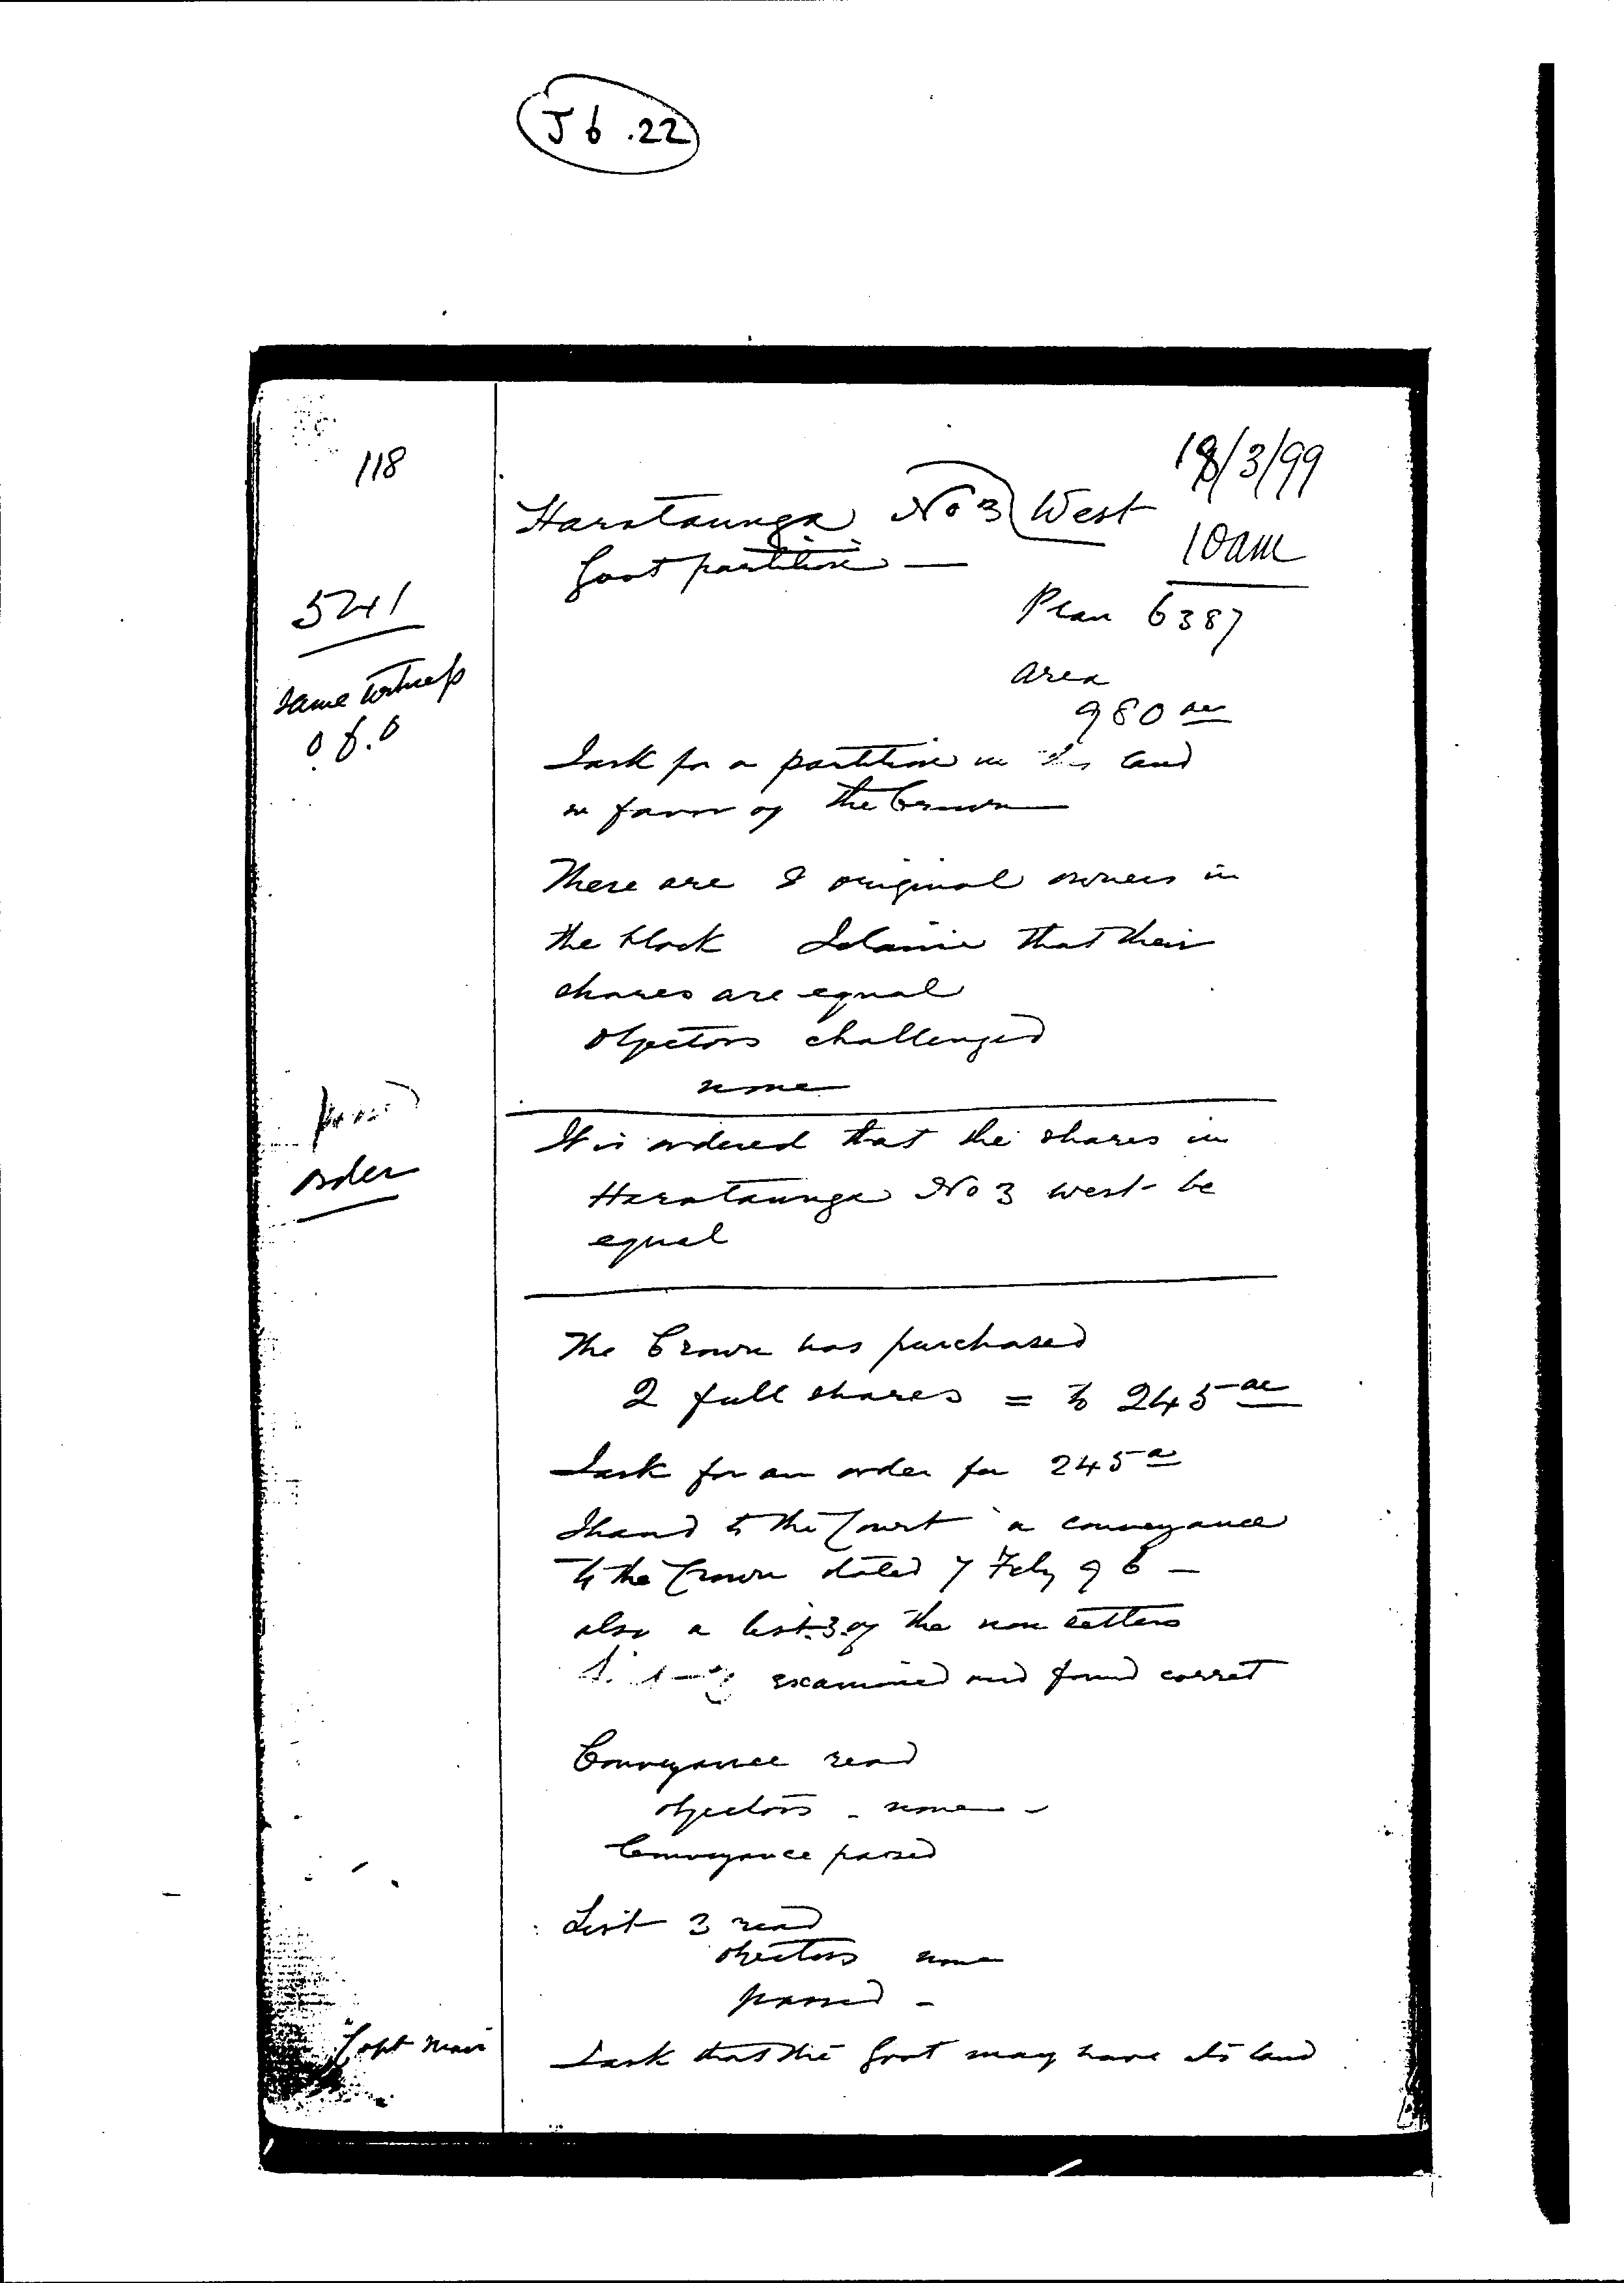 J6.22
118
18/3/99
Harataunga No 3 West
10am
Govt partition —
5241
Plan 6387
same witness
o f. o
area
980 ac
I ask for a partition in this land
in favor of the Crown
There are 8 original owners in
the block I claim that their
shares are equal
Objectors challenged
none
order
It is ordered that the shares in
Harataunga No 3 West be
equal
The Crown has purchased
2 full shares = to 245 ac
I ask for an order for 245 a
I hand to the Court a conveyance
to the Crown dated 7 Feby 96 —
also a list 3 of the non sellers
examined and found corret
Conveyance read
objectors - none -
Conveyance passed
List 3 read
objectors none
passed -
Capt Mair
I ask that the Govt may have its land